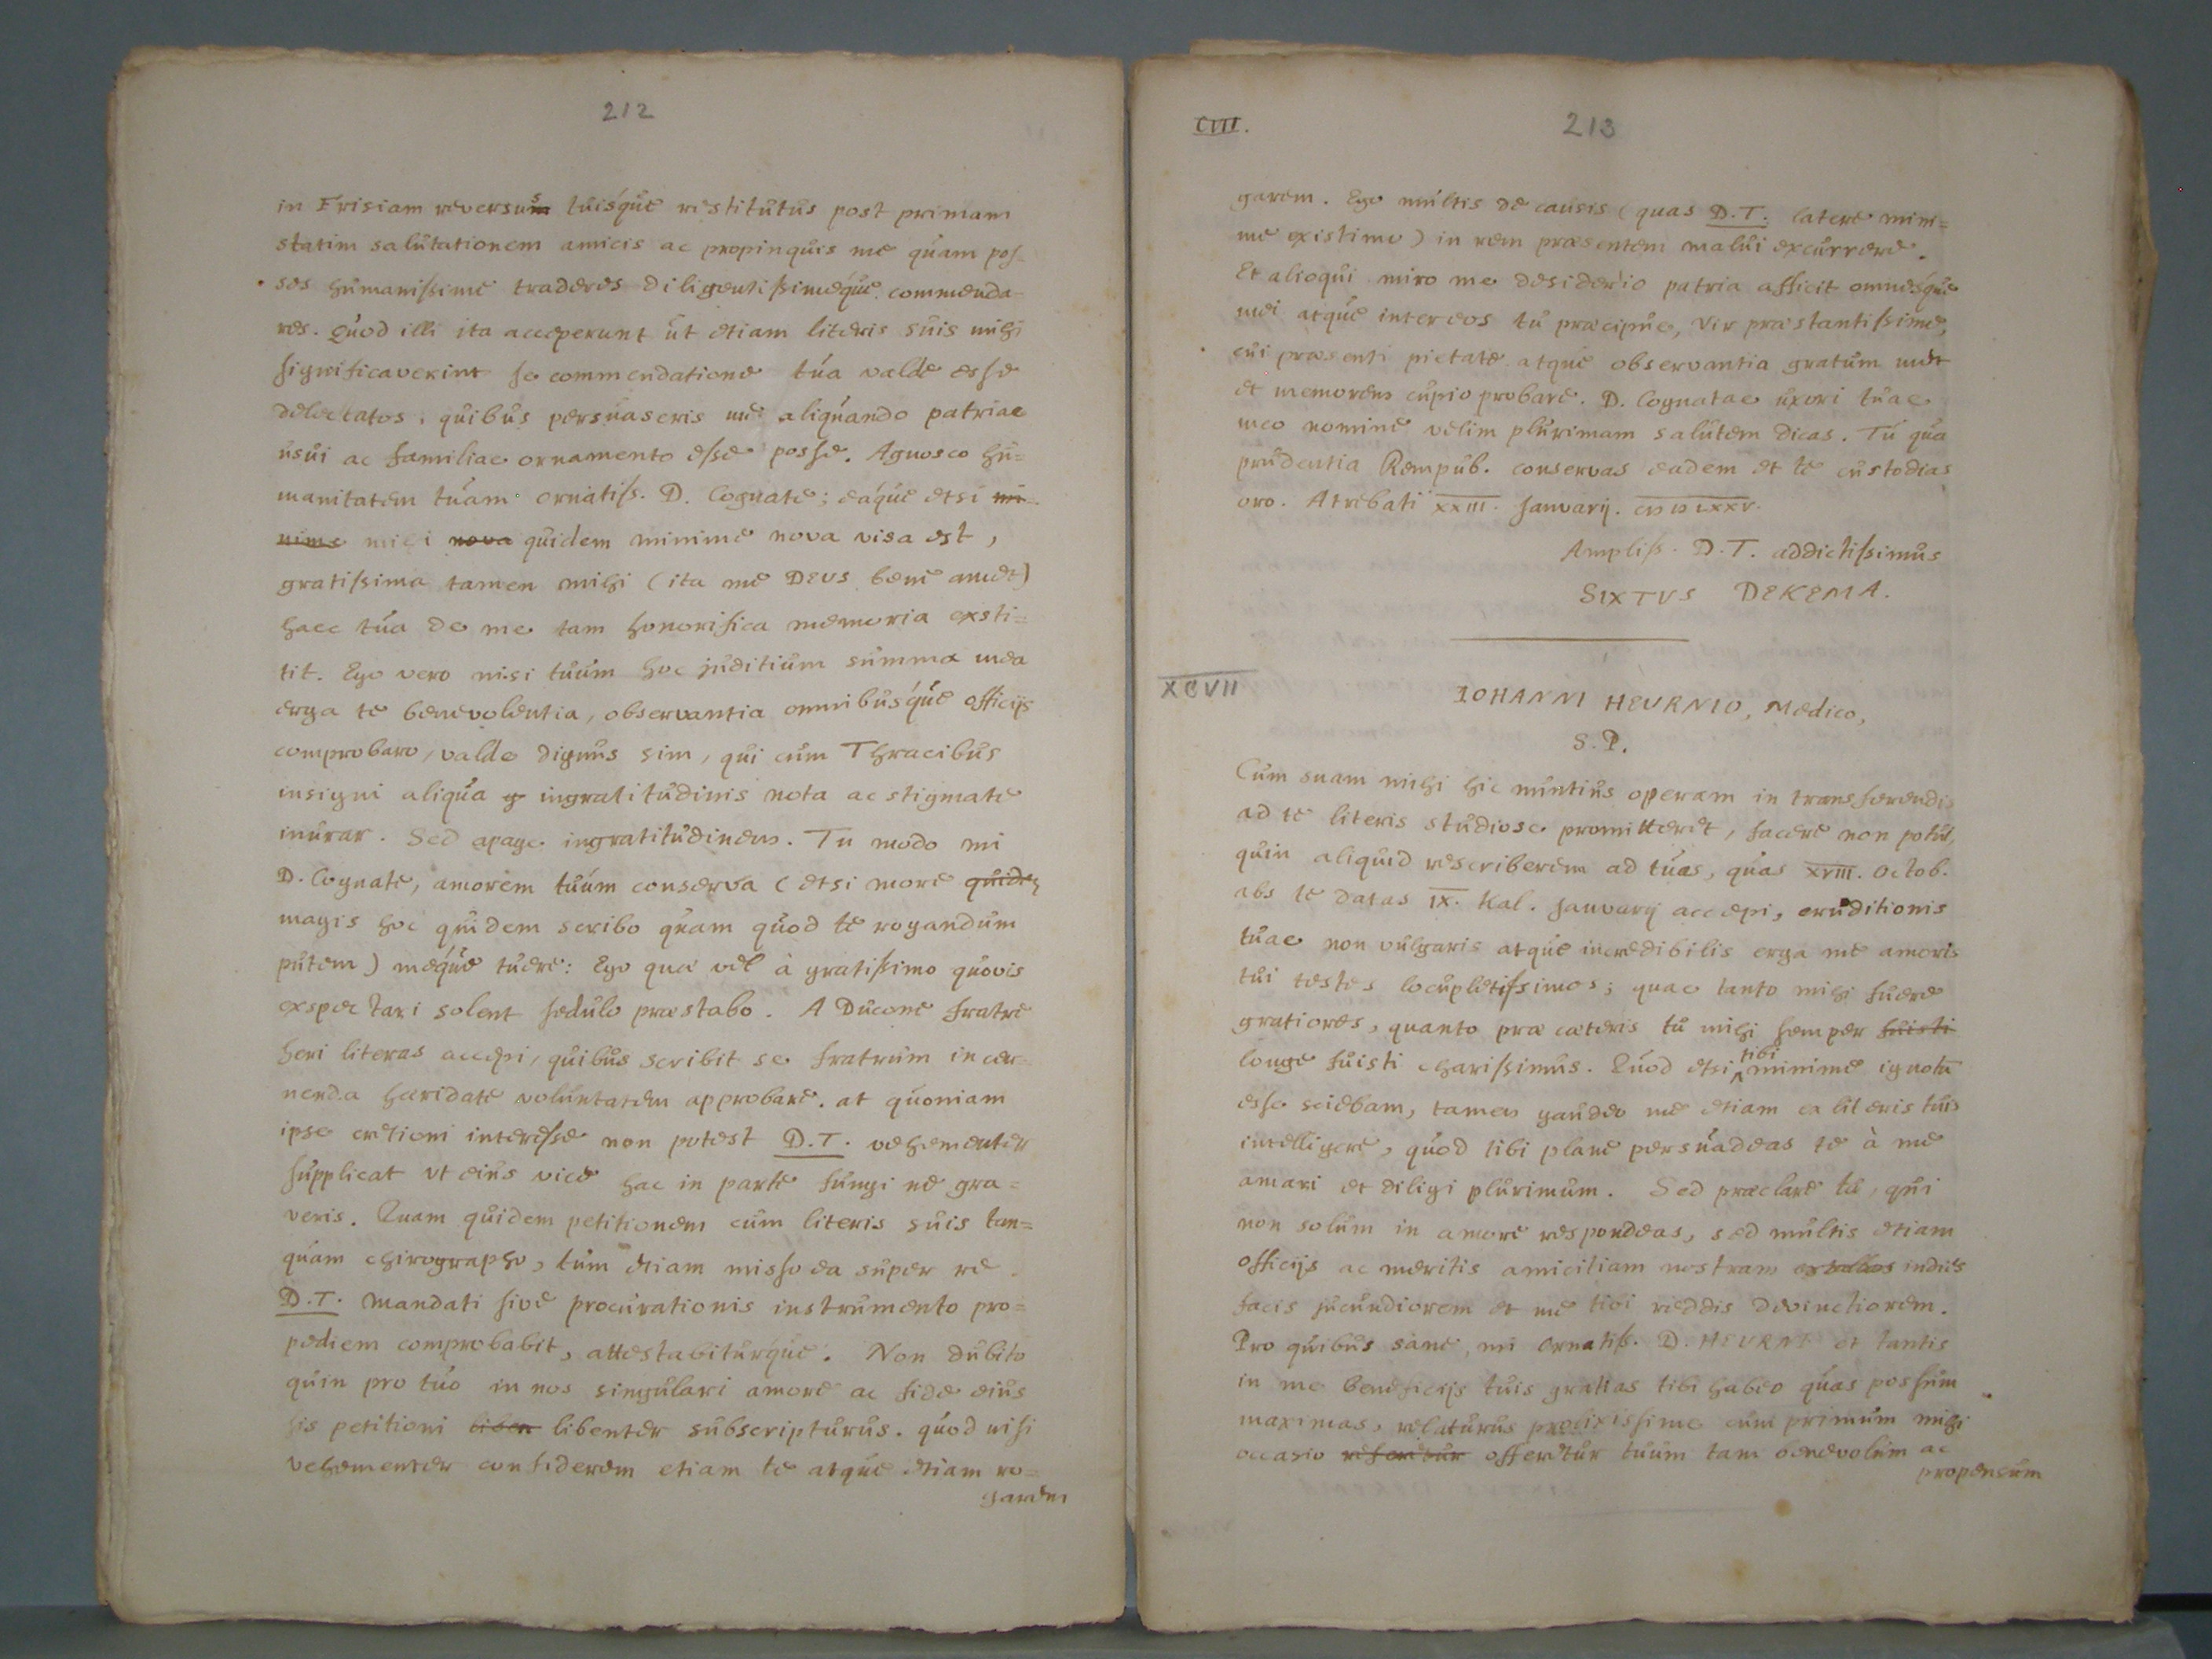 212
in Frisiam reversus tuisque restitutus post primam
statim salutationem amicis ac propinquis me quam pos-
ses humanissime traderes diligentissimeque commenda-
res. Quod illi ita acceperunt ut etiam literis suis mihi
significaverint se commendatione tua valde esse
delectatos, quibus persuaseris me aliquando patriae
usui ac familiae ornamento esse posse. Agnosco hu=
manitatem tuam ornatiss. D. Cognate; eaque etsi mi-
nime mihi nova quidem minime nova visa est,
gratissima tamen mihi (ita me DEUS bene amet)
haec tua de me tam honorifica memoria exsti=
tit. Ego vero nisi tuum hoc juditium summa mea
erga te benevolentia, observantia omnibusque officijs
comprobaro, valde dignus sim, qui cum Thracibus
insigni aliqua g ingratitudinis nota ac stigmate
inurar. Sed apage ingratitudinem. Tu modo mi
D. Cognate, amorem tuum conserva (etsi more quidem
magis hoc quidem scribo quam quod te rogandum
putem) meque tuere: Ego quae vel à gratissimo quovis
exspectari solent sedulo praestabo. A Ducone fratre
heri literas accepi, quibus scribit se fratrum in cer-
nenda haeridate voluntatem approbare. at quoniam
ipse cretioni interesse non potest D.T. vehementer
supplicat ut eius vice hac in parte fungi ne gra=
veris. Quam quidem petitionem cum literis suis tan=
quam chirographo, tum etiam misso ea super re
D.T. mandati sive procurationis instrumento pro=
pediem comprobabit, attestabiturque. Non dubito
quin pro tuo in nos singulari amore ac fide eius
sis petitioni liben libenter subscripturus. quod nisi
vehementer confiderem etiam te atque etiam ro=
garem
CIII.
213
garem. Ego multis de causis (quas D.T. latere mini=
me existimo) in rem praesentem malui excurrere.
Et alioqui miro me desiderio patria afficit omnesque
mei atque inter eos tu praecipue, Vir praestantissime,
cui praesenti pietate atque observantia gratum me
et memorem cupio probare. D. Cognatae uxori tuae
meo nomine velim plurimam salutem dicas. Tu qua
prudentia Rempub. conservas eadem et te custodias
oro. Atrebati XXIII. Januarij. CIƆ IƆ LXXV.
Ampliss. D.T. addictissimus
SIXTVS DEKEMA.
XCVII
IOHANNI HEVRNIO, Medico,
S.P.
Cum suam mihi hic nuntius operam in transferendis
ad te literis studiose promitteret, facere non potui,
quin aliquid rescriberem ad tuas, quas XVIII. Octob.
abs te datas IX. Kal. Januarij accepi, eruditionis
tuae non vulgaris atque incredibilis erga me amoris
tui testes locupletissimos; quae tanto mihi fuere
gratiores, quanto prae caeteris tu mihi semper fuisti
longe fuisti charissimus. Quod etsi tibi minime ignotū
esse sciebam, tamen gaudeo me etiam ex literis tuis
intelligere, quod tibi plane persuadeas te à me
amari et diligi plurimum. Sed praeclare tu, qui
non solum in amore respondeas, sed multis etiam
officijs ac meritis amicitiam nostram indies
facis jucundiorem et me tibi reddis devinctiorem.
Pro quibus sane, mi Ornatiss. D. HEVRNI et tantis
in me beneficijs tuis gratias tibi habeo quas possum
maximas, relaturus prolixissime cum primum mihi
occasio referetur offeretur tuum tam benevolum ac
propensum